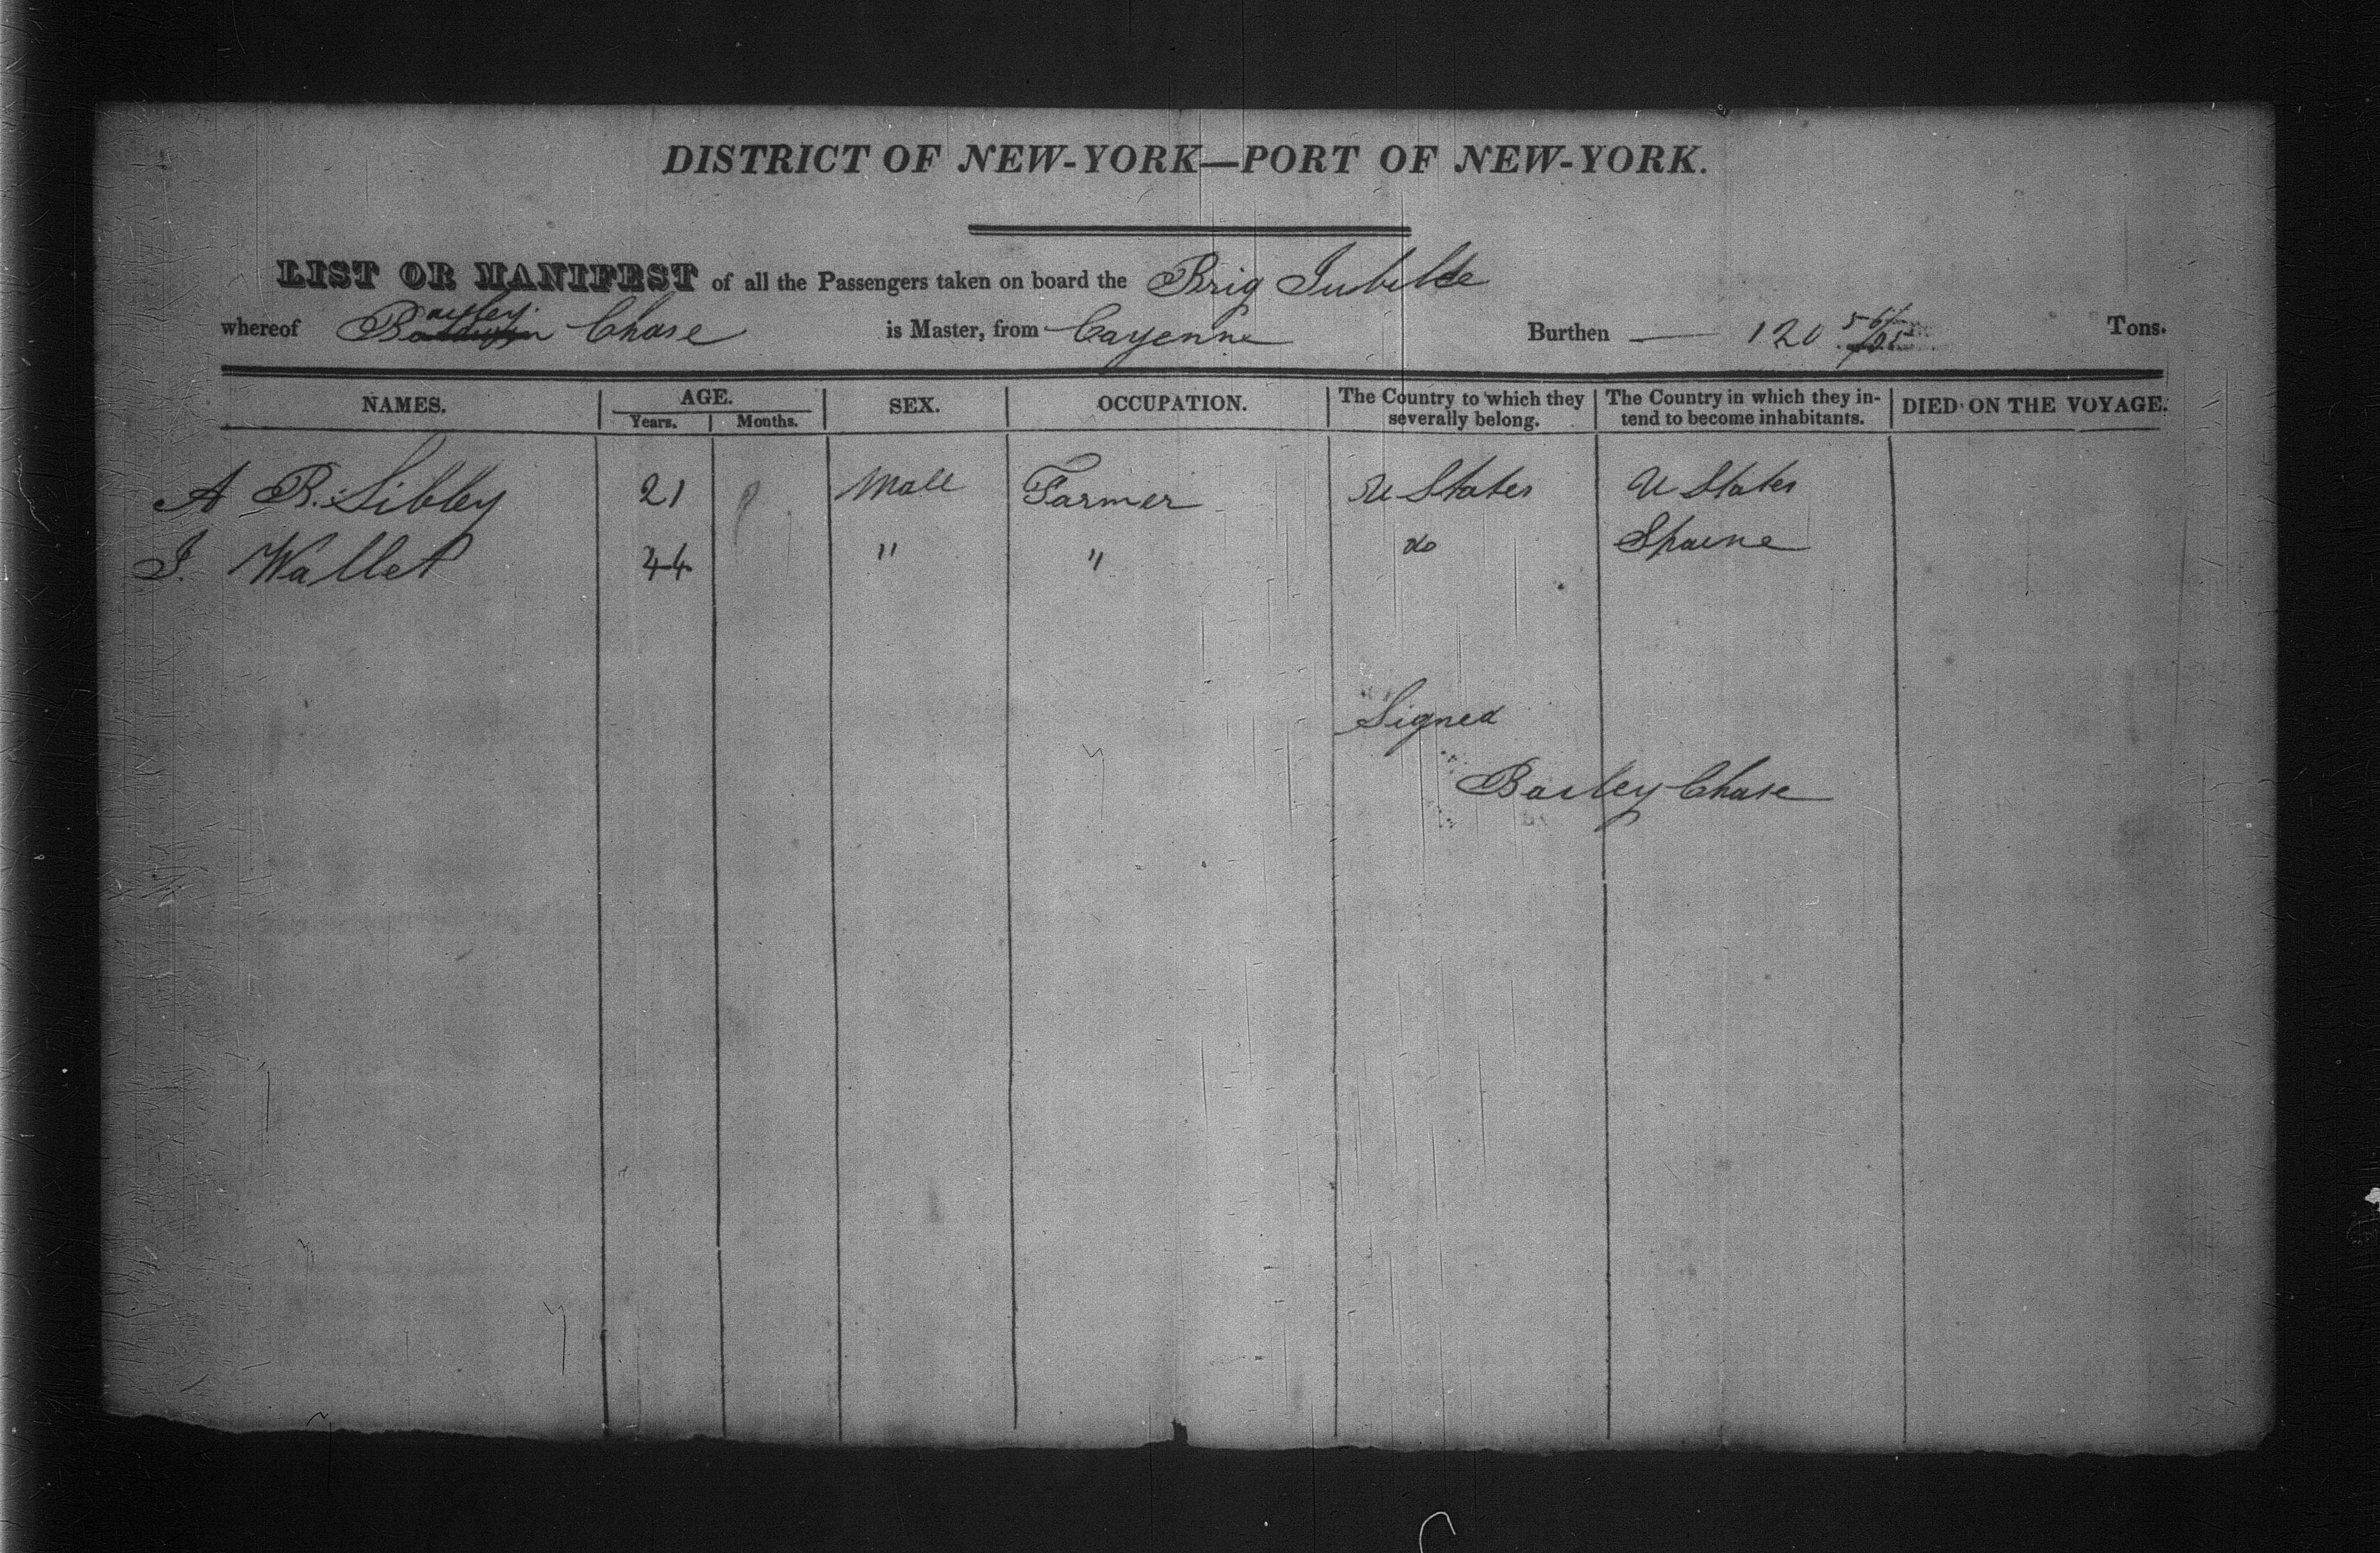 DISTRICT OF NEW-YORK—PORT OF NEW-YORK.
LIST OR MANIFEST of all the Passengers taken on board the Brig Jubilee
whereof Bailey Chase is Master, from Cayenne Burthen — 120 Tons.
NAMES. AGE. Years. Months. SEX. OCCUPATION. The Country to which they severally belong. The Country in which they intend to become inhabitants. DIED ON THE VOYAGE.
A B. Sibley 21 Male Farmer U States U States
J. Wallet 44 " " do Spaine
Signed
Bailey Chase